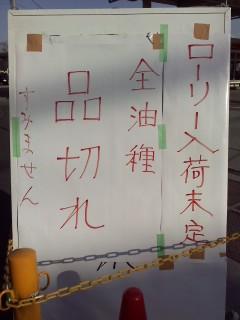 ローリー入荷末定
全油種
品切れ
すみません